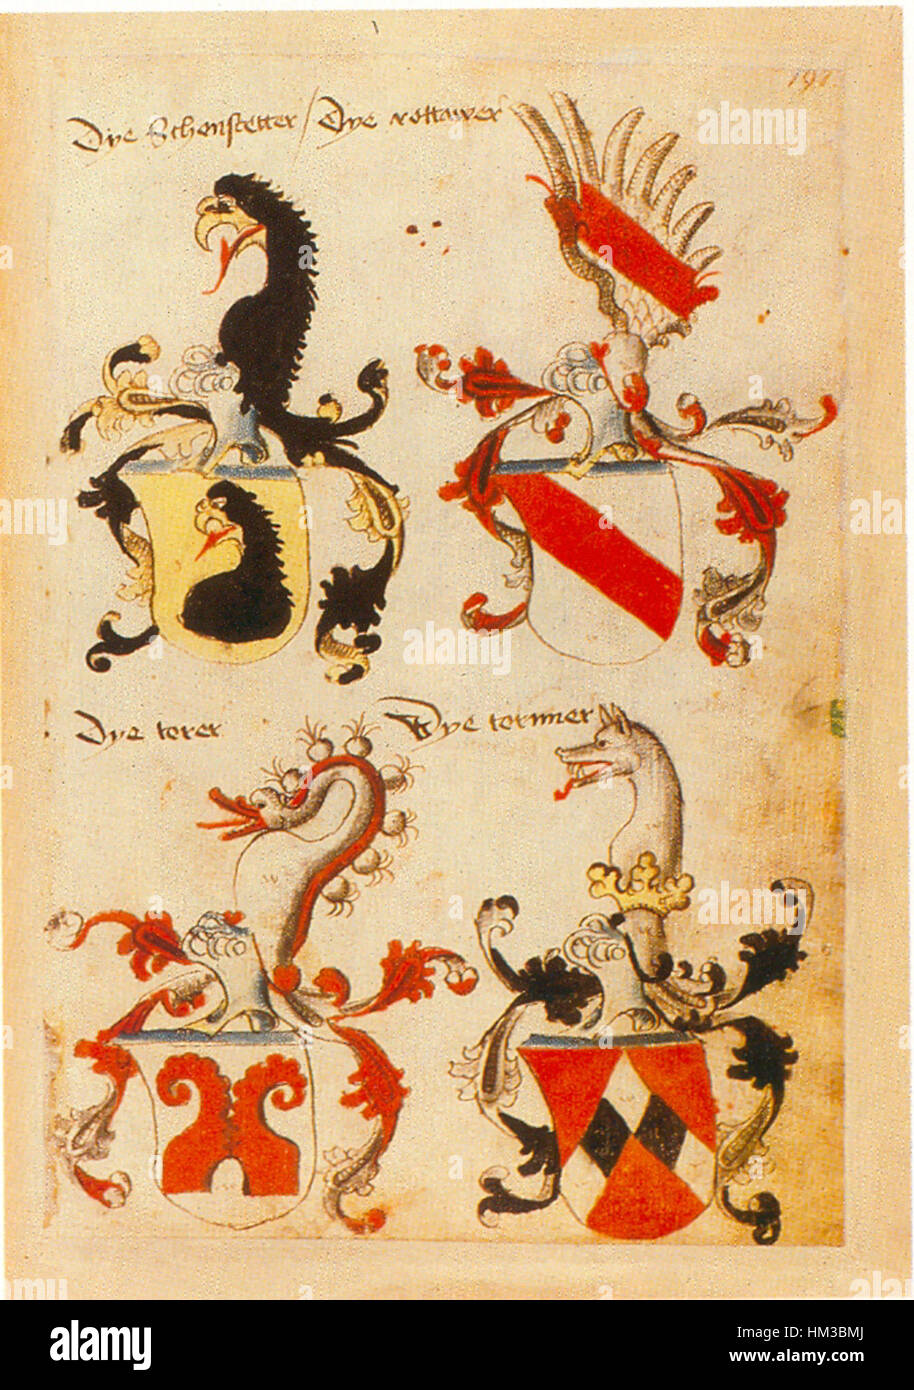 191
Dye Schonstetter / Dye rottawer
Dye torer
Dye tornner
alamy
Image ID: HM3BMJ
www.alamy.com